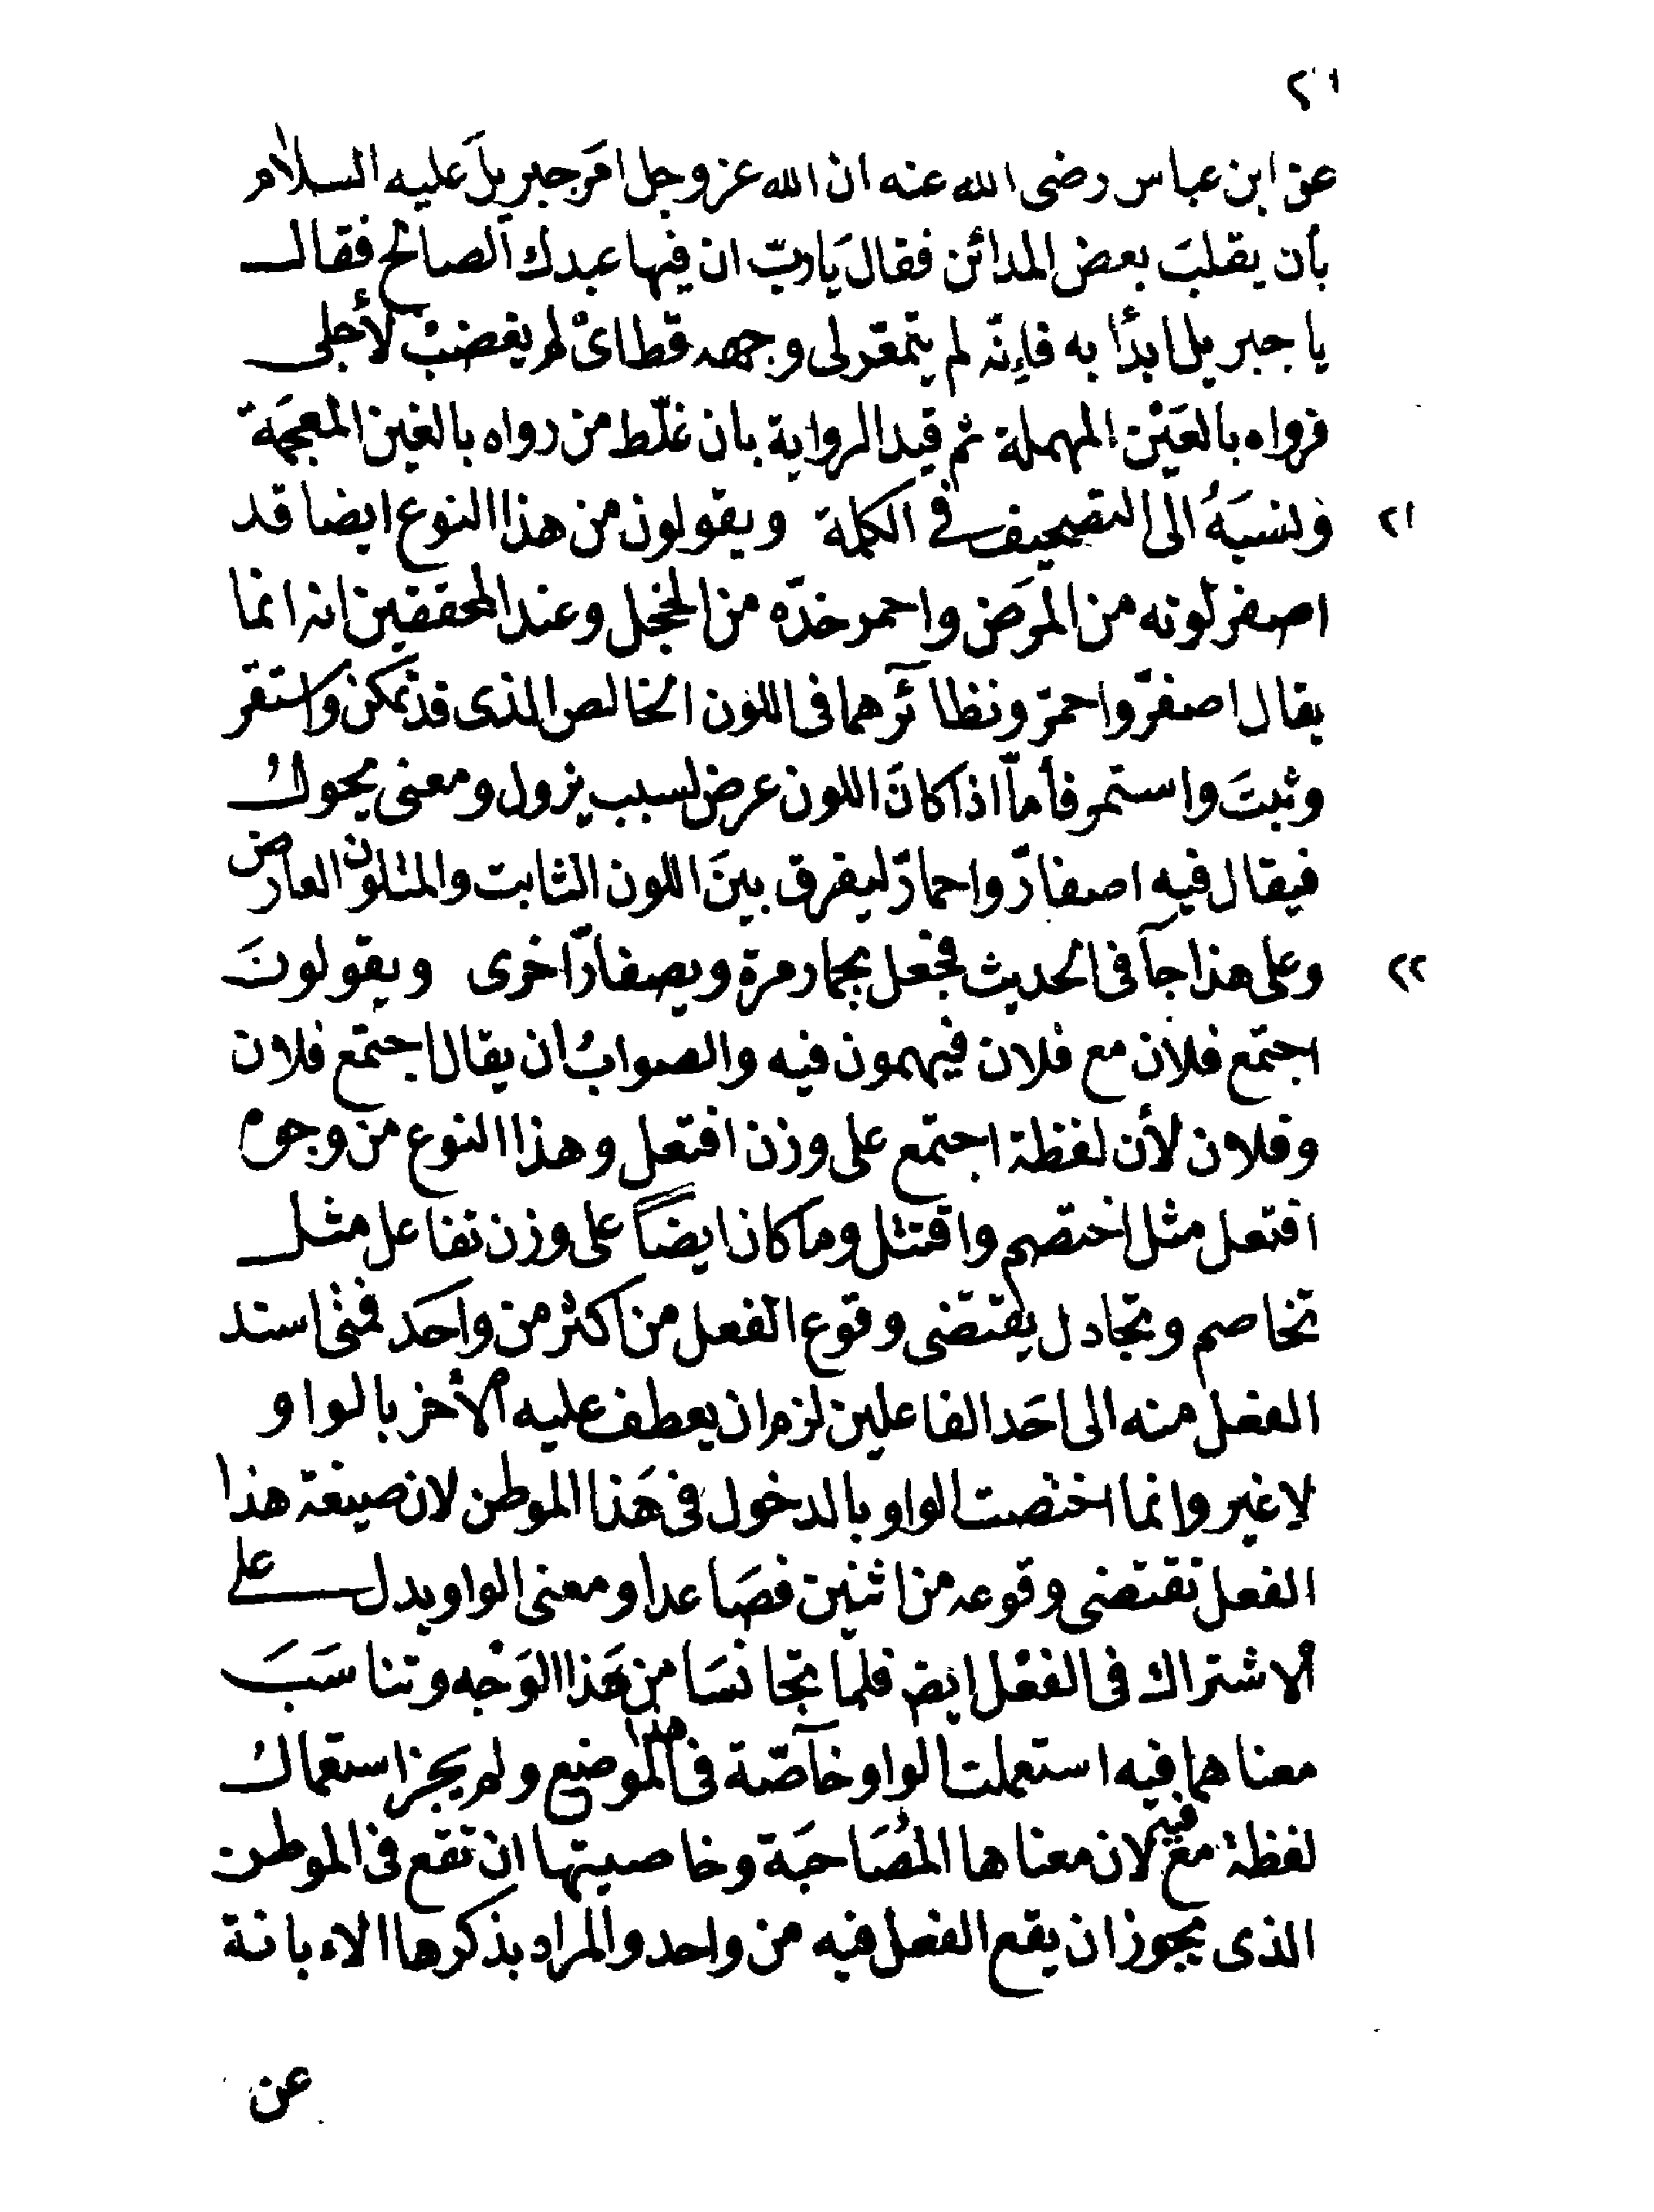 ٢١
عن ابن عباس رضى الله عنه ان الله عز وجل امَر جبريلَ عليه السلام
بأن يقلبَ بعض المدائن فقال يَاربّ ان فيها عبدك الصالح فقال
يا جبريل ابدأ به فإنّه لم يتمعّر لى وجهه قط اىْ لم يغضبْ لأجلى
فرواه بالعَيْن المهملة ثم قيد الرواية بان غلّط من رواه بالغين المعجمَة
ونسبَهُ الى التصحيف فى الكلمة ويقولون من هذا النوع ايضا قد ٢١
اصفر لونه من المرَض واحمر خدّه من الخجل وعند المحققين انه انما
يقال اصفرّ واحمرّ ونظائرهما فى اللون الخالص الذى قد تمكن واستقر
وثبتَ واستمر فأمّا اذا كانَ اللون عرض لسبب يزول ومعنى يحول
فيقال فيه اصفارّ واحمارّ ليفرق بينَ اللون الثابت والمتلون العارض
وعلى هذا جآ فى الحديث فجعل يحمار مرة ويصفارّ اخرى ويقولونَ ٢٢
اجتمع فلان مع فلان فيهمون فيه والصوابُ ان يقال اجتمع فلان
وفلان لأن لفظة اجتمع على وزن افتعل وهذا النوع من وجوه
افتعل مثل اختصم واقتتل وما كان ايضًا على وزن تفاعل مثل
تخاصم وتجادل يقتضى وقوع الفعل من اكثر من واحَد فمتى اسند
الفعل منه الى احَد الفاعلين لزم ان يعطف عليه الأخر بالواو
لا غير وانما اختصت الواو بالدخول فى هَذا الموطن لان صيغة هذا
الفعل تقتضى وقوعه من اثنين فصَاعدا ومعنى الواو يدل على
الاشتراك فى الفعْل ايض فلمّا تجانسَا من هَذا الوَجْه وتناسَبَ
معناهما فيه استعملت الواو خآصّة فى هذا الموضع ولم يَجز استعمال
لفظة مع فيه لان معناها المُصَاحبَة وخاصيتها ان تقع فى الموطن
الذى يجوز ان يقع الفعل فيه من واحد والمراد بذكرها الاءبانة
عن